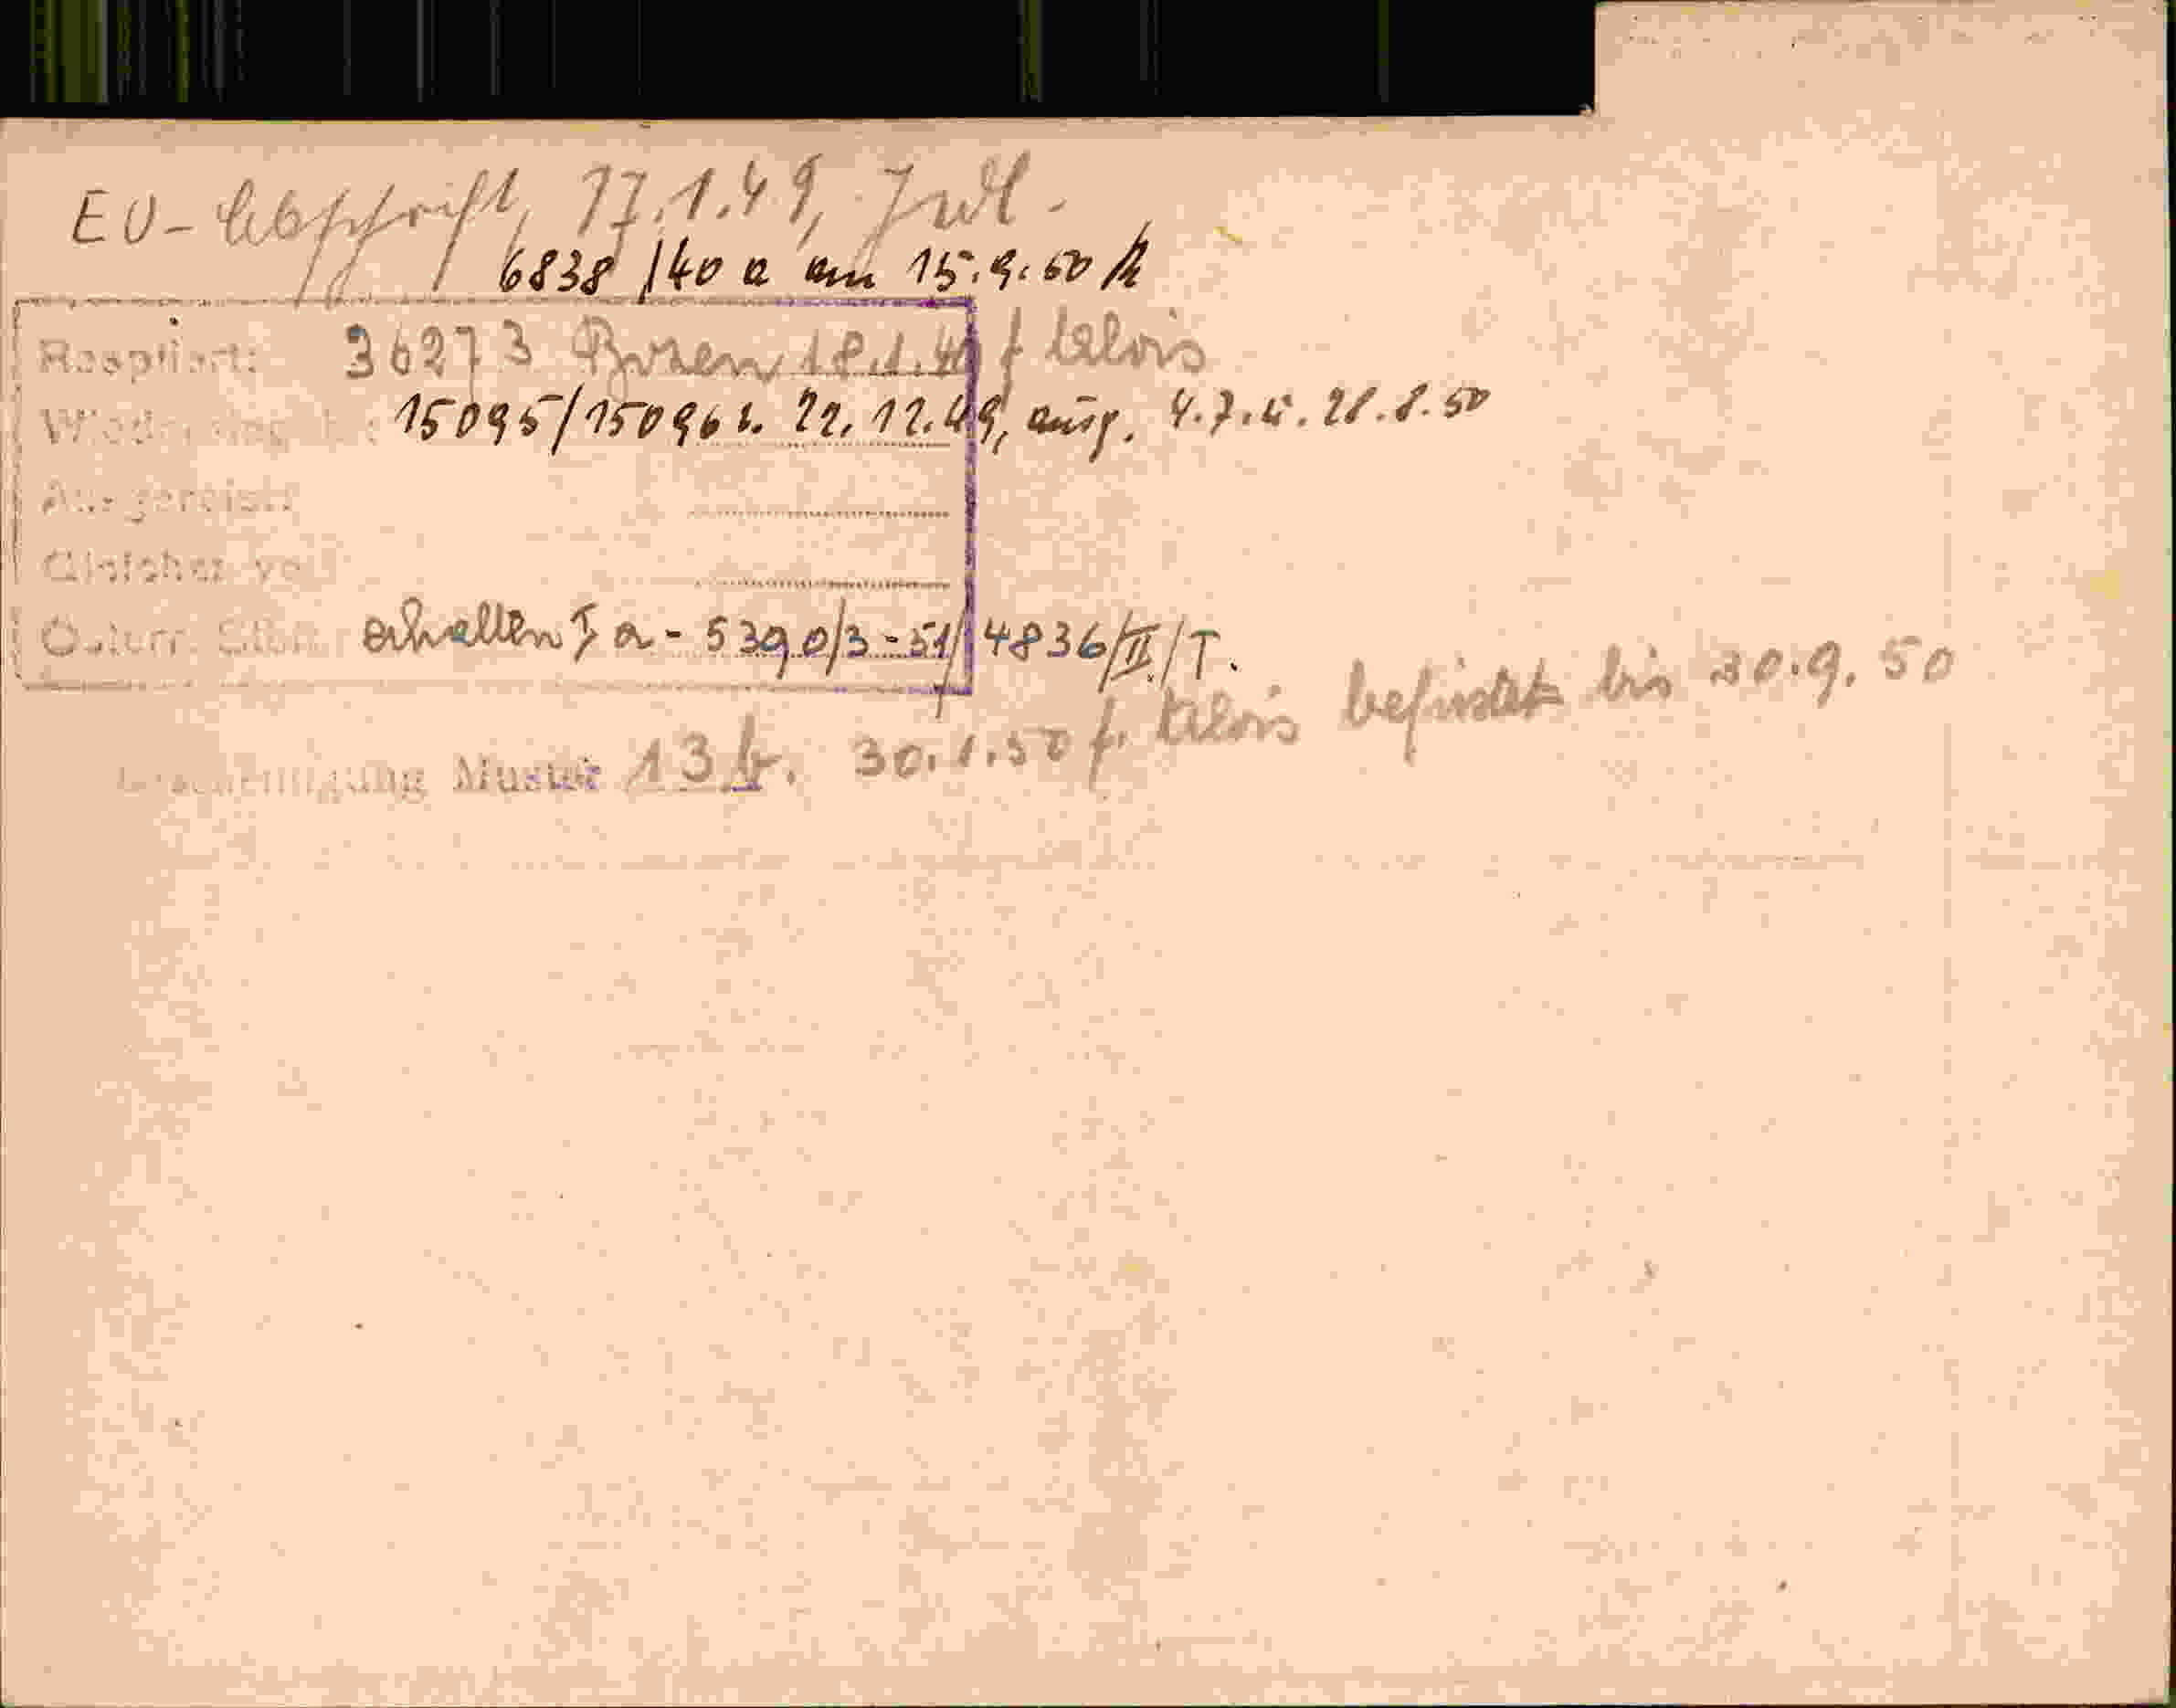 EU-Abschrift, 17.1.49, Jud.
6838/40 a am 15.9.50
Reoptiert: 36273 Bozen 18.1.49 f Alois
15095/15096 v. 22.12.49, ausg. 4.7. u. 28.8.50
Ausgereist:
Gleicher
Österr. erhalten I a - 5390/3-51/4836/II/T.
Bescheinigung Muster 13 b. 30.1.50 f. Alois befristet bis 30.9.50